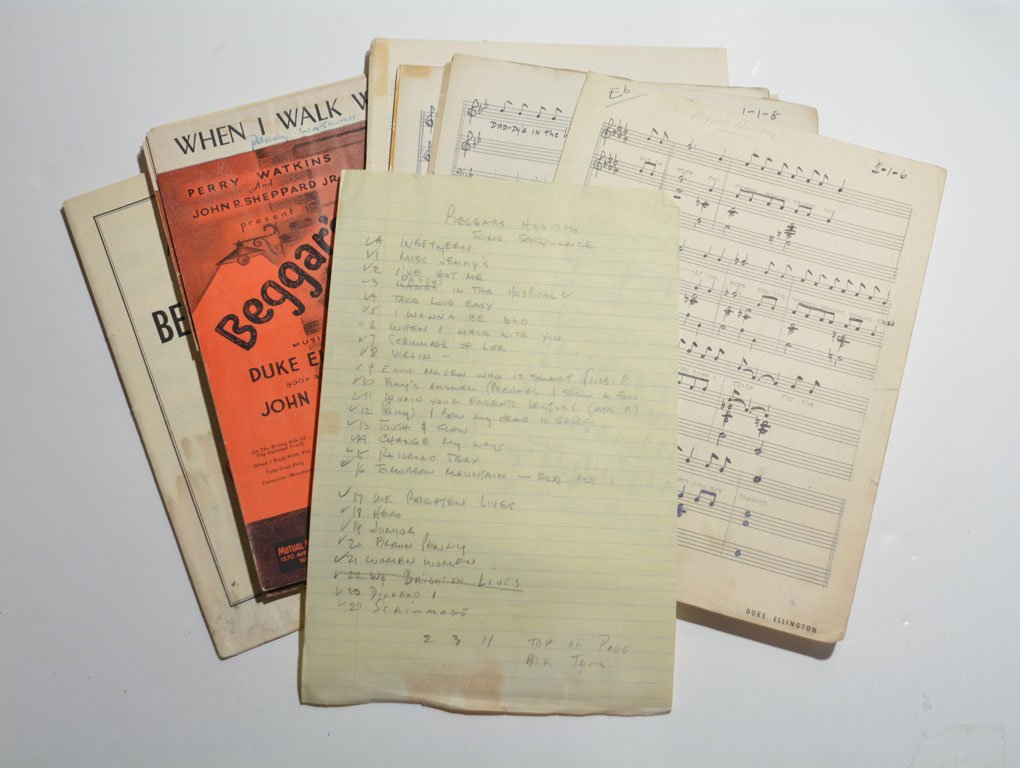 WHEN I WALK W
PERRY WATKINS
PERRY WATKINS
And
JOHN R. SHEPPARD JR.
present
Beggar's
MUSI
DUKE EL
BOOK A
JOHN
On The Wrong Side Of
The Railroad Track
When I Walk With You
Take Love Easy
Tomorrow Mountain
MUTUAL M
1270 AVE
N
BE
DAD-DY'S IN THE
Eb
Beggar's Holiday
1-1-8
1-1-6
for the
through
DUKE ELLINGTON
BEGGARS HOLIDAY
SONG SEQUENCE
A INBETWEEN
1 MISS JENNY'S
2 I'VE GOT ME
DADDYS
3 MAMAS IN THE HOSPITAL
4 TAKE LOVE EASY
5 I WANNA BE BAD
6 WHEN I WALK WITH YOU
7 SCRIMMAGE OF LIFE
8 VIRGIN
9 EACH MAIDEN WHO IS SMART (MRS. P.
10 POLLY'S ANSWER (PERHAPS I SHOW A FOND
11 IN VAIN YOUR PARENTS LECTURE (MRS P.)
12 (POLLY) I BOW MY HEAD IN GRIEF
13 TOOTH & CLAW
14 CHANGE MY WAYS
15 RAILROAD TRAX
16 TOMORROW MOUNTAIN — END ACT 1
17 WE BRIGHTEN LIVES
18 HERO
19 JUNIOR
20 BROWN PENNY
21 WOMEN WOMEN
22 WE BRIGHTEN LIVES
DILLARD 1
SCRIMMAGE
2 3 11 TOP OF PAGE
ASK TOM